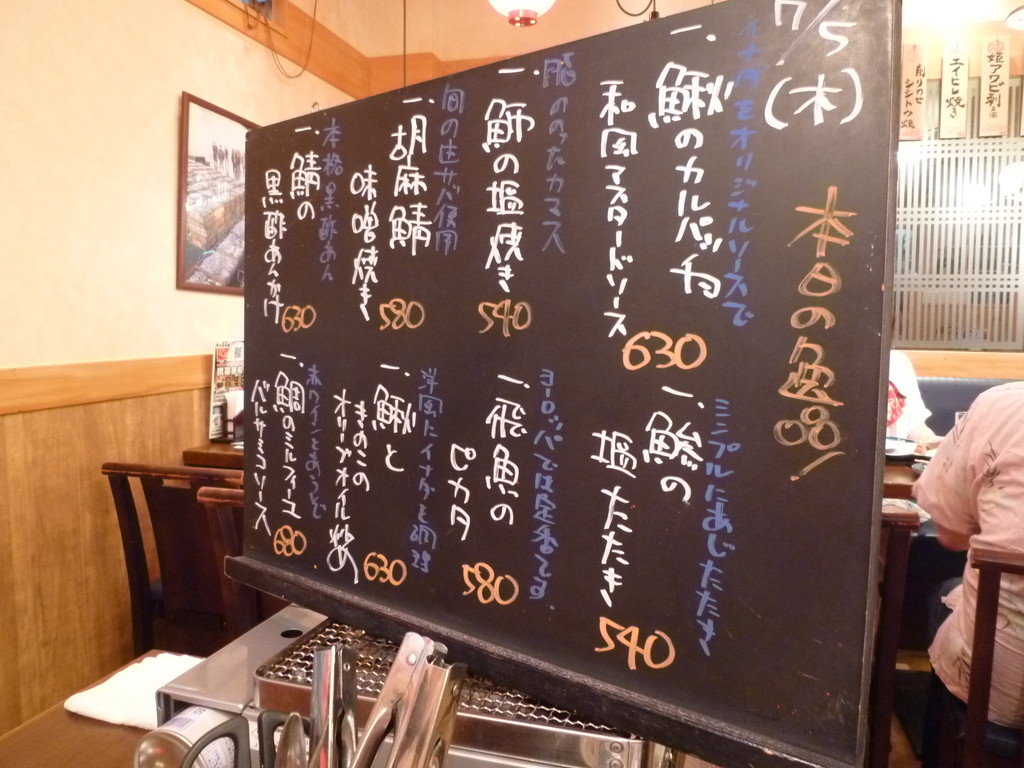 7/5
(木)
本日の逸品!
イナダをオリジナルソースで
一、鰍のカルパッチョ
和風マスタードソース
630
脂ののったカマス
一、魳の塩焼き
540
旬の生サバ使用
一、胡麻鯖
味噌焼き
580
本格黒酢あん
一、鯖の
黒酢あんかけ
630
シンプルにあじたたき
一、鯵の
塩たたき
540
ヨーロッパでは定番です
一、飛魚の
ピカタ
580
洋風にイナダを調理
一、鰍と
きのこの
オリーブオイル炒め
630
赤ワインとあうよ
一、鯛のミルフィーユ
バルサミコソース
680
姫アワビ刺
エイヒレ焼き